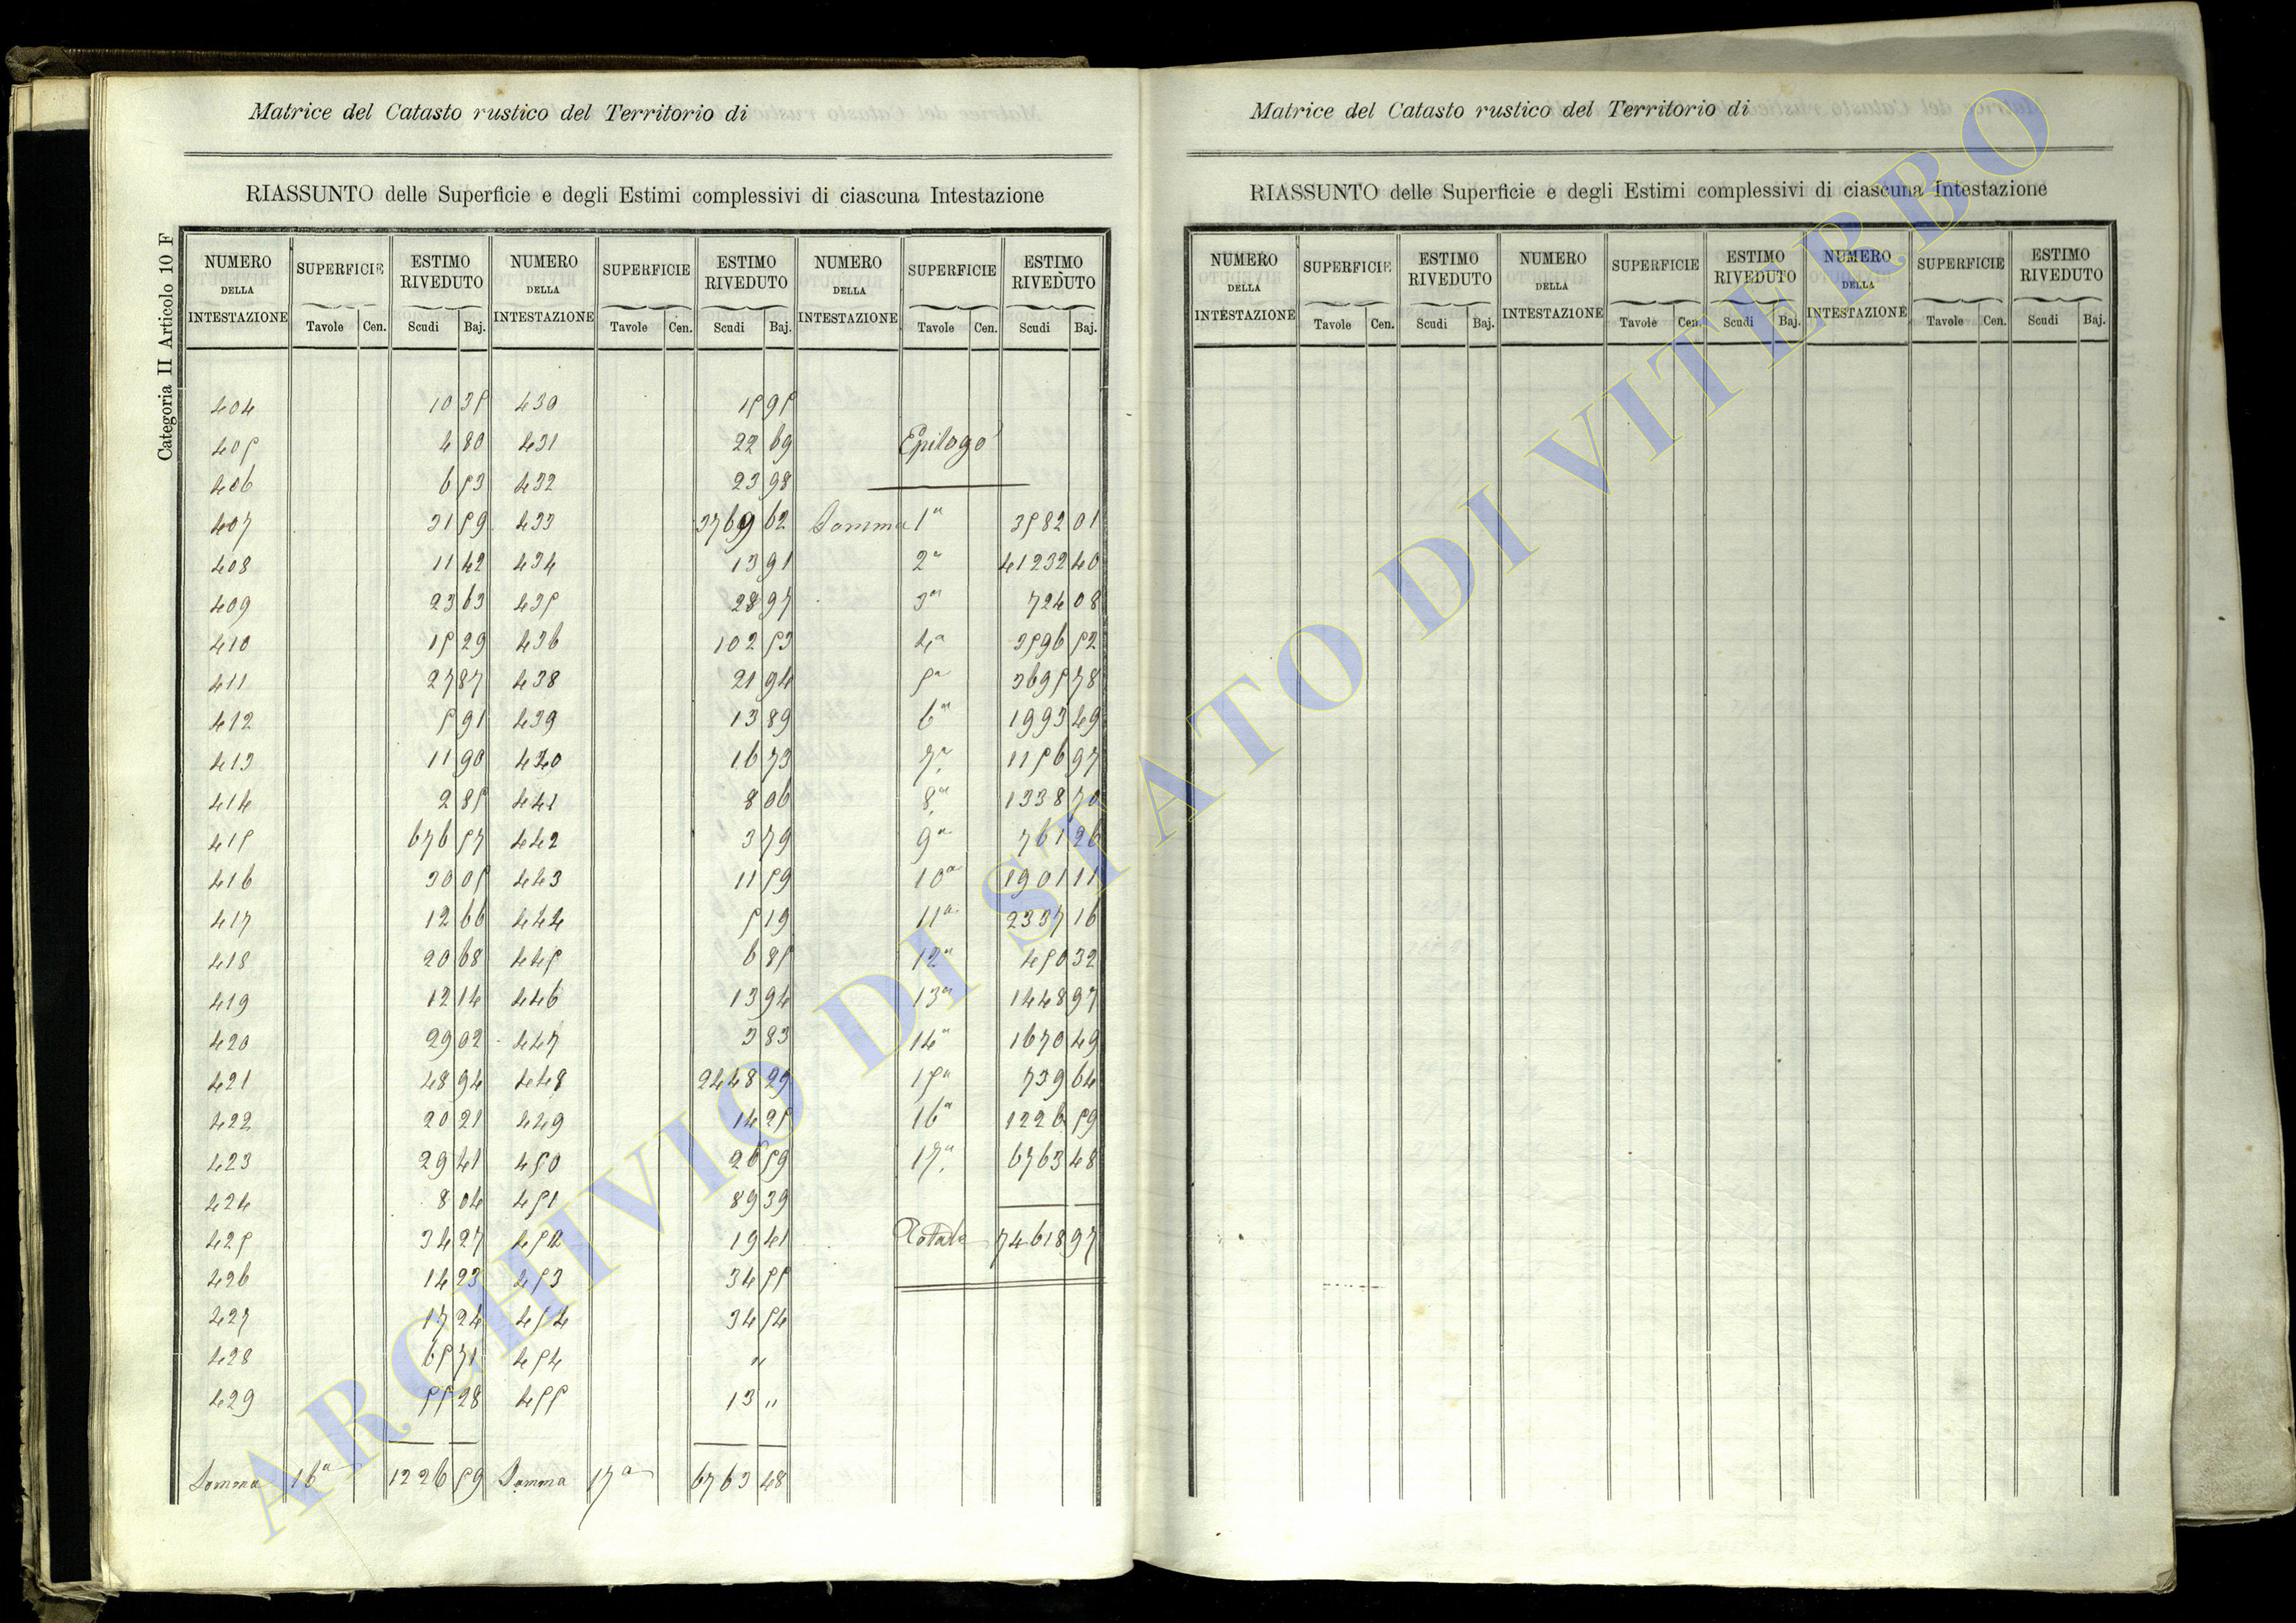 Matrice del Catasto rustico del Territorio di
RIASSUNTO delle Superficie e degli Estimi complessivi di ciascuna Intestazione
Categoria II Articolo 10 F
NUMERO DELLA INTESTAZIONE SUPERFICIE ESTIMO RIVEDUTO NUMERO DELLA INTESTAZIONE SUPERFICIE ESTIMO RIVEDUTO NUMERO DELLA INTESTAZIONE SUPERFICIE ESTIMO RIVEDUTO
Tavole Cen. Scudi Baj. Tavole Cen. Scudi Baj. Tavole Cen. Scudi Baj.
404 10 35 430 15 95
405 4 80 431 22 69 Epilogo
406 6 53 432 23 98
407 31 59 433 3769 62 Somma 1a 3582 01
408 11 42 434 13 91 2a 41232 40
409 23 63 435 28 97 3a 724 08
410 15 29 436 102 53 4a 3596 52
411 27 87 438 21 94 5a 3695 78
412 5 91 439 13 89 6a 1993 49
413 11 90 440 16 73 7a 1156 97
414 2 85 441 8 06 8a 1338 70
415 676 57 442 3 79 9a 761 26
416 30 05 443 11 59 10a 1901 11
417 12 66 444 5 19 11a 2337 16
418 20 68 445 6 85 12a 450 32
419 12 14 446 13 94 13a 1448 97
420 29 02 447 3 83 14a 1670 49
421 48 94 448 2448 29 15a 739 64
422 20 21 449 14 25 16a 1226 59
423 29 41 450 26 59 17a 6763 48
424 8 04 451 89 39
425 34 27 452 19 41 Totale 74618 97
426 14 23 453 34 55
427 17 24 454 34 54
428 65 71 454 "
429 55 28 455 13 "
Somma 16a 1226 59 Somma 17a 6763 48
Matrice del Catasto rustico del Territorio di
RIASSUNTO delle Superficie e degli Estimi complessivi di ciascuna Intestazione
NUMERO DELLA INTESTAZIONE SUPERFICIE ESTIMO RIVEDUTO NUMERO DELLA INTESTAZIONE SUPERFICIE ESTIMO RIVEDUTO NUMERO DELLA INTESTAZIONE SUPERFICIE ESTIMO RIVEDUTO
Tavole Cen. Scudi Baj. Tavole Cen. Scudi Baj. Tavole Cen. Scudi Baj.
ARCHIVIO DI STATO DI VITERBO